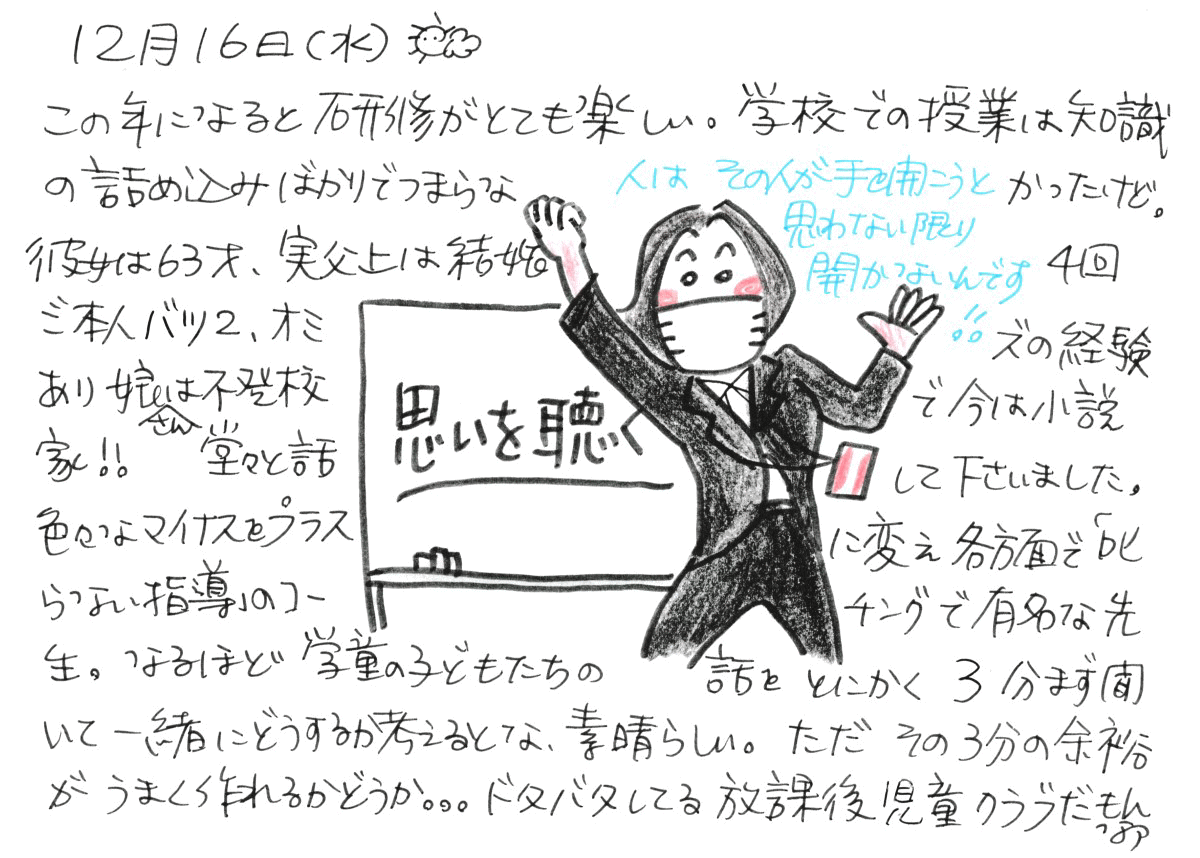 12月16日(水)
この年になると研修がとても楽しい。学校での授業は知識
の詰め込みばかりでつまらなかったけど。
人は その人が手を開こうと
思わない限り
開かないんです!!
彼女は63才、実父上は結婚4回
ご本人バツ2、オミズの経験
あり娘さんは不登校で今は小説
家!! 堂々と話して下さいました。
色々なマイナスをプラスに変え各方面で「叱
らない指導」のコーチングで有名な先
生。なるほど学童の子どもたちの話をとにかく3分まず聞
いて一緒にどうするか考えるとな、素晴らしい。ただその3分の余裕
がうまく作れるかどうか。。。ドタバタしてる放課後児童クラブだもんなァ
思いを聴く